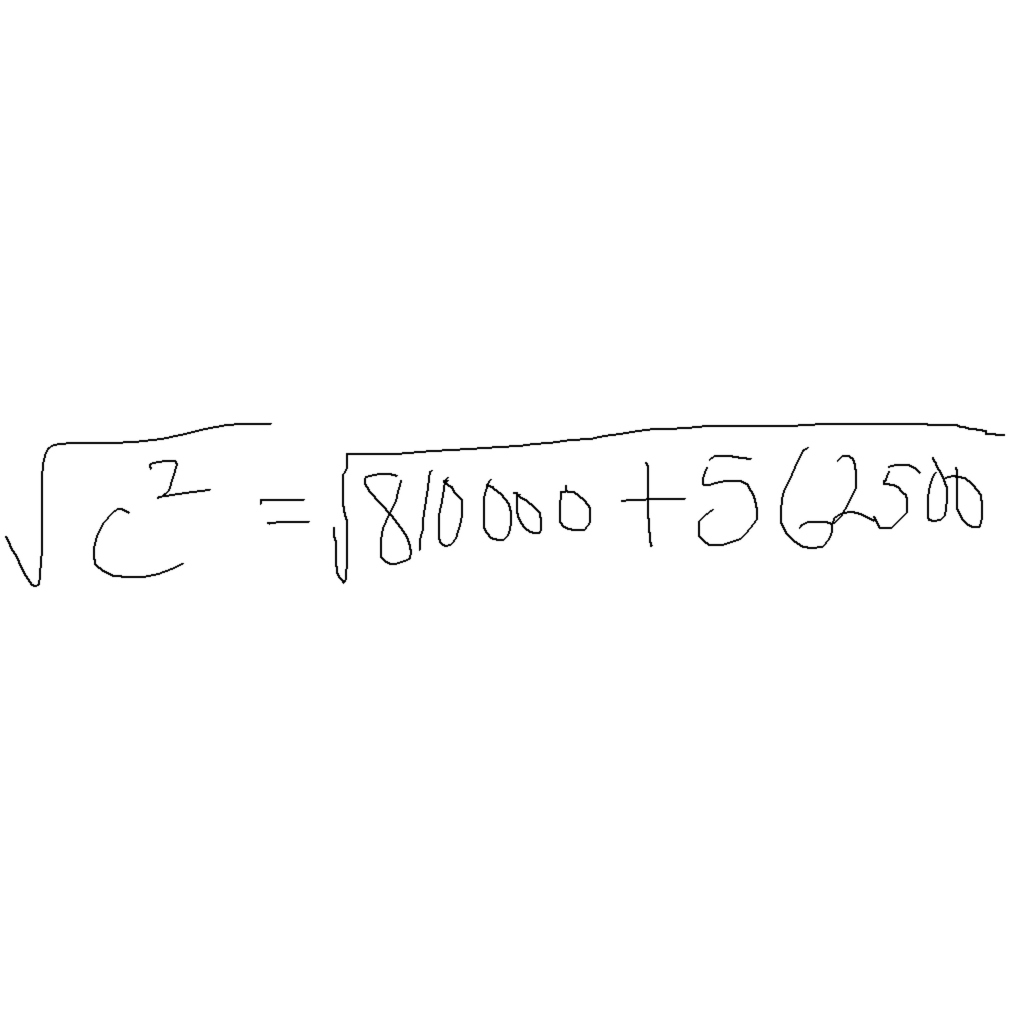 √c² = √810000 + 562500